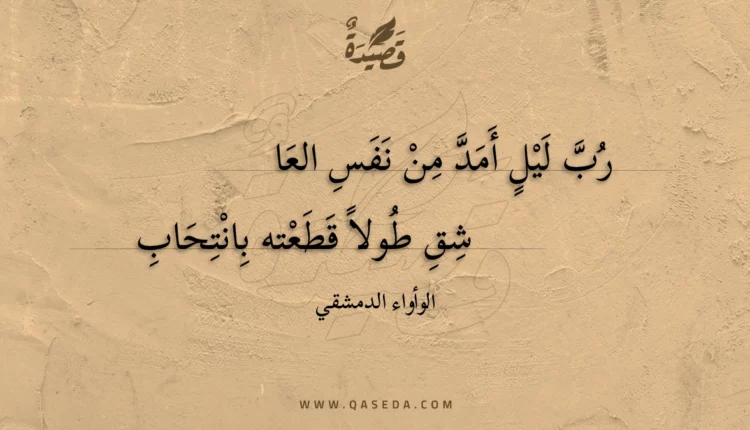 قَصِيدَةٌ
رُبَّ لَيْلٍ أَمَدَّ مِنْ نَفَسِ العَا
شِقِ طُولاً قَطَعْته بِانْتِحَابِ
الوأواء الدمشقي
WWW.QASEDA.COM